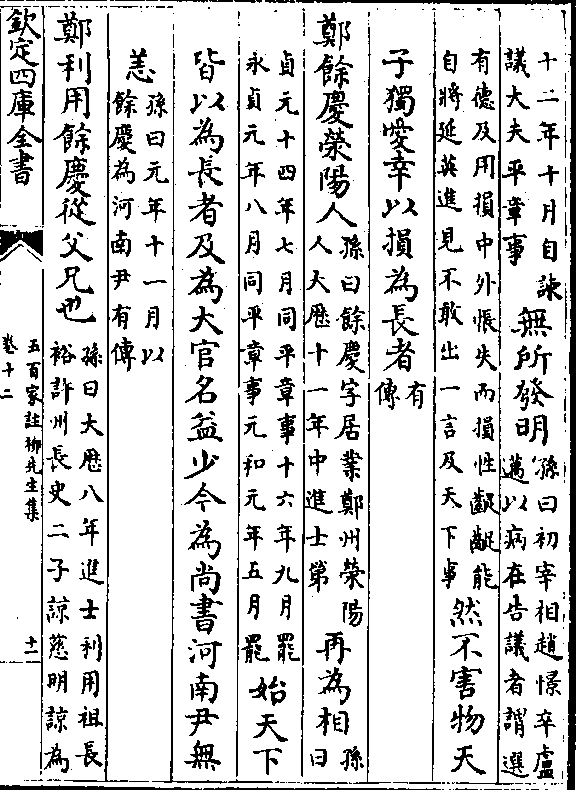 十二年十月自諫
議大夫平章事
無所發明
孫曰初宰相趙憬卒盧
邁以病在告議者謂選
有德及用損中外悵失而損性齪齪能
自將延英進見不敢出一言及天下事
然不害物天
子獨愛幸以損為長者
有
傳
鄭餘慶滎陽人
孫曰餘慶字居業鄭州滎陽
人大歷十一年中進士第
再為相
孫
曰
貞元十四年七月同平章事十六年九月罷
永貞元年八月同平章事元和元年五月罷
始天下
皆以為長者及為大官名益少今為尚書河南尹無
恙
孫曰元年十一月以
餘慶為河南尹有傳
鄭利用餘慶從父兄也
孫曰大歷八年進士利用祖長
裕許州長史二子諒慈明諒為
欽定四庫全書
五百家註柳先生集
卷十二
十一